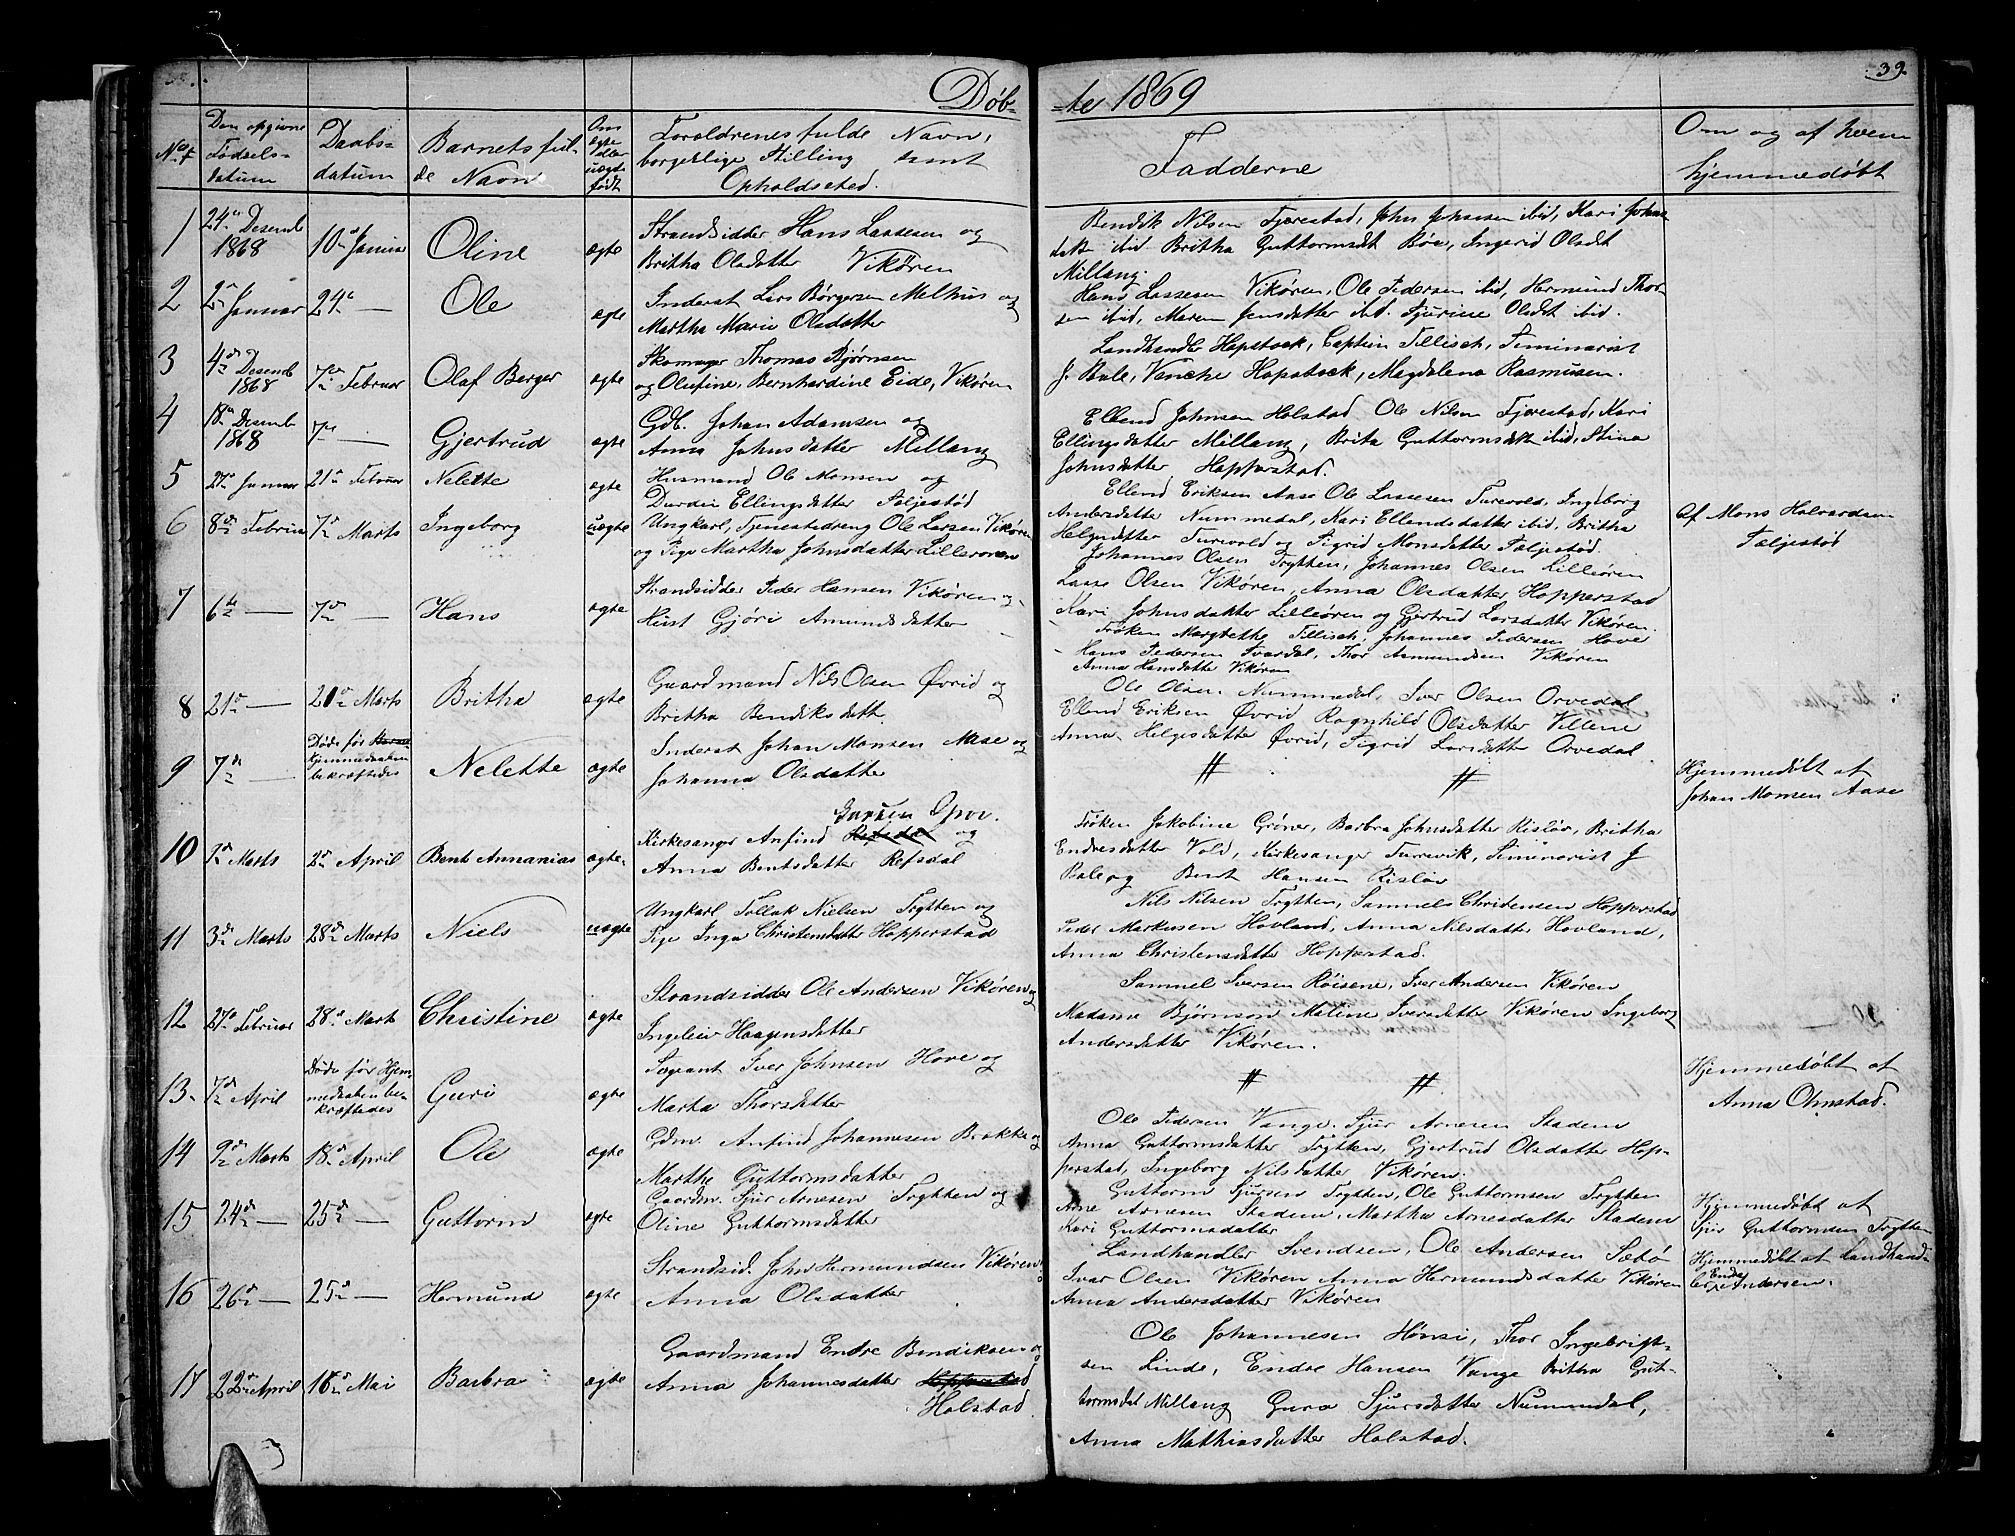 39.
Døb-
te 1869
No
Den opgivne
Fødsels-
datum
Daabs-
datum
Barnets ful-
de Navn
Om
ægte
eller
uægte
født
Forældrenes fulde Navn,
borgerlige Stilling samt
Opholdssted.
Fadderne
Om og af hvem
hjemmedøbt
1
24de Desemb
1868
10de Januar
Oline
ægte
Strandsidder Hans Lassesen og
Britha Olsdatter Vikøren
Bendik Nilsen Fjærestad, John Johnsen ibid, Kari Johns
datt ibid Britha Guttormsdt Bøe, Ingerid Olsdt
Millang.
2
2den Januar
24de —
Ole
ægte
Inderst Lars Børgersen Melhus og
Martha Marie Olsdatter
Hans Lassesen Vikøren, Ole Pedersen ibid, Hermund Thor-
sen ibid, Maren Jensdatter ibd. Sjurine Olsdt ibid.
3
4de Desemb
1868
7de Februar
Olaf Berger
ægte
Skomager Thomas Bjørnsen
og Olufine, Bernhardine Eide, Vikøren
Landhandler Hopstock, Captein Tillisch, Seminarist
J. Bale, Vencke Hopstock, Magdalena Rasmusen.
4
18de Desemb
1868
7de —
Gjertrud
ægte
Gdb. Johan Adamsen og
Anna Johnsdatter Millang
Ellend Johnsen Holstad Ole Nilsen Fjærestad, Kari
Ellingsdatter Millang, Brita Guttormsdtt ibid, Stina
Johnsdatter Hopperstad.
5
27de Januar
21de Februar
Nelette
ægte
Husmand Ole Monsen og
Durdei Ellingsdatter Seljestød
Ellend Eriksen Aase Ole Lassesen Turvold, Ingeborg
Andersdatter Nummedal, Kari Ellendsdatter ibid, Britha
Helgesdatter Turvold og Sigrid Monsdatter Seljestød.
Af Mons Halvardsen
Seljestød
6
8de Februar
7de Marts
Ingeborg
uægte
Ungkarl, Tjenestedreng Ole Larsen Vikøren
og Pige Martha Johnsdatter Lilleøren
Johannes Olsen Trytten, Johannes Olsen Lilleøren
Lasse Olsen Vikøren, Anna Olsdatter Hopperstad
Kari Johnsdatter Lilleøren og Gjertrud Larsdatter Vikøren.
7
6te —
7de —
Hans
ægte
Strandsidder Peder Hansen Vikøren og
Hust Gjøri Amundsdatter —
Frøken Margrethe Tillisch, Johannes Pedersen Hove
Hans Pedersen Svardal, Thor Asmundsen Vikøren
Anna Hansdatter Vikøren
8
21de —
21de Marts
Britha
ægte
Gaardmand Nils Olsen Øvrid og
Britha Bendiksdatt
Ole Olsen Nummedal, Iver Olsen Orvedal
Ellend Eriksen Øvrid Ragnhild Olsdatter Villene
Anna Helgesdatter Øvrid, Sigrid Larsdatter Orvedal.
9
7de —
Døde før
hjemmedaaben
bekræftedes
Nelette
ægte
Inderst Johan Monsen Aase og
Johanna Olsdatter
// //
Hjemmedøbt af
Johan Monsen Aase
10
7de Marts
2den April
Bent Annanias
ægte.
Kirkesanger Anfind Refsdal og
Anna Bentsdatter Refsdal
Frøken Jakobine Gröner, Barbra Johnsdatter Risløv, Britha
Endresdatter Vold, Kirkesanger Turvik, Seminarist J
Bale og Bent Hansen Risløv
11
3de Marts
28de Marts
Niels
uægte
Ungkarl Tollak Nielsen Trytten og
Pige Inga Christensdatter Hopperstad
Nils Nilsen Trytten, Sammels Christensen Hopperstad
Peder Markusen Hovland, Anna Nilsdatter Hovland,
Anna Christensdatter Hopperstad.
12
27de Februar
28de Marts
Christine
ægte
Strandsidder Ole Andersen Vikøren og
Ingeleiv Haagensdatter
Sammel Iversen Røisene, Iver Andersen Vikøren
Madame Björnson Maline Iversdatter Vikøren Ingeborg
Andersdatter Vikøren.
13.
7de April
Døde før Hjem-
medaaben be-
kræftedes
Guri
ægte
Sergeant Iver Johnsen Hove og
Marta Thorsdatter
// //
Hjemmedøbt af
Anna Ohnstad.
14
9de Marts
18de April
Ole
ægte
Gdm. Anfind Johannesen Brække og
Marthe Guttormsdatter
Ole Pedersen Vange. Sjur Arnesen Stadem
Anna Guttormsdatter Trytten, Gjertrud Olsdatter Hop-
perstad, Ingeborg Nilsdatter Vikøren.
15
24de —
25de —
Guttorm
ægte
Gaardm. Sjur Arnesen Trytten og
Oline Guttormsdatter
Guttorm Sjursen Trytten, Ole Guttormsen Trytten
Arne Arnesen Stadem, Martha Arnesdatter Stadem
Kari Guttormsdatter
Hjemmedøbt af
Sjur Guttormsen Trytten
16
26de —
25de —
Hermund
ægte
Strandsid. John Hermundsen Vikøren og
Anna Olsdatter
Landhandler Svendsen, Ole Andersen Sæbø
Ivar Olsen Vikøren Anna Hermundsdatter Vikøren
Anna Andersdatter Vikøren
Hjemmedøbt af Landhand-
ler Endre Andersen.
17
22de April
16de Mai
Barbra
ægte
Gaardmand Endre Bendiksen og
Anna Johannesdatter Hopperstad
Holstad
Ole Johannesen Hønsi, Thor Ingebrigt-
sen Linde, Endre Hansen Vange Britha Gut-
tormsdat Millang Gura Sjursdatter Nummedal,
Anna Mathiasdatter Holstad.